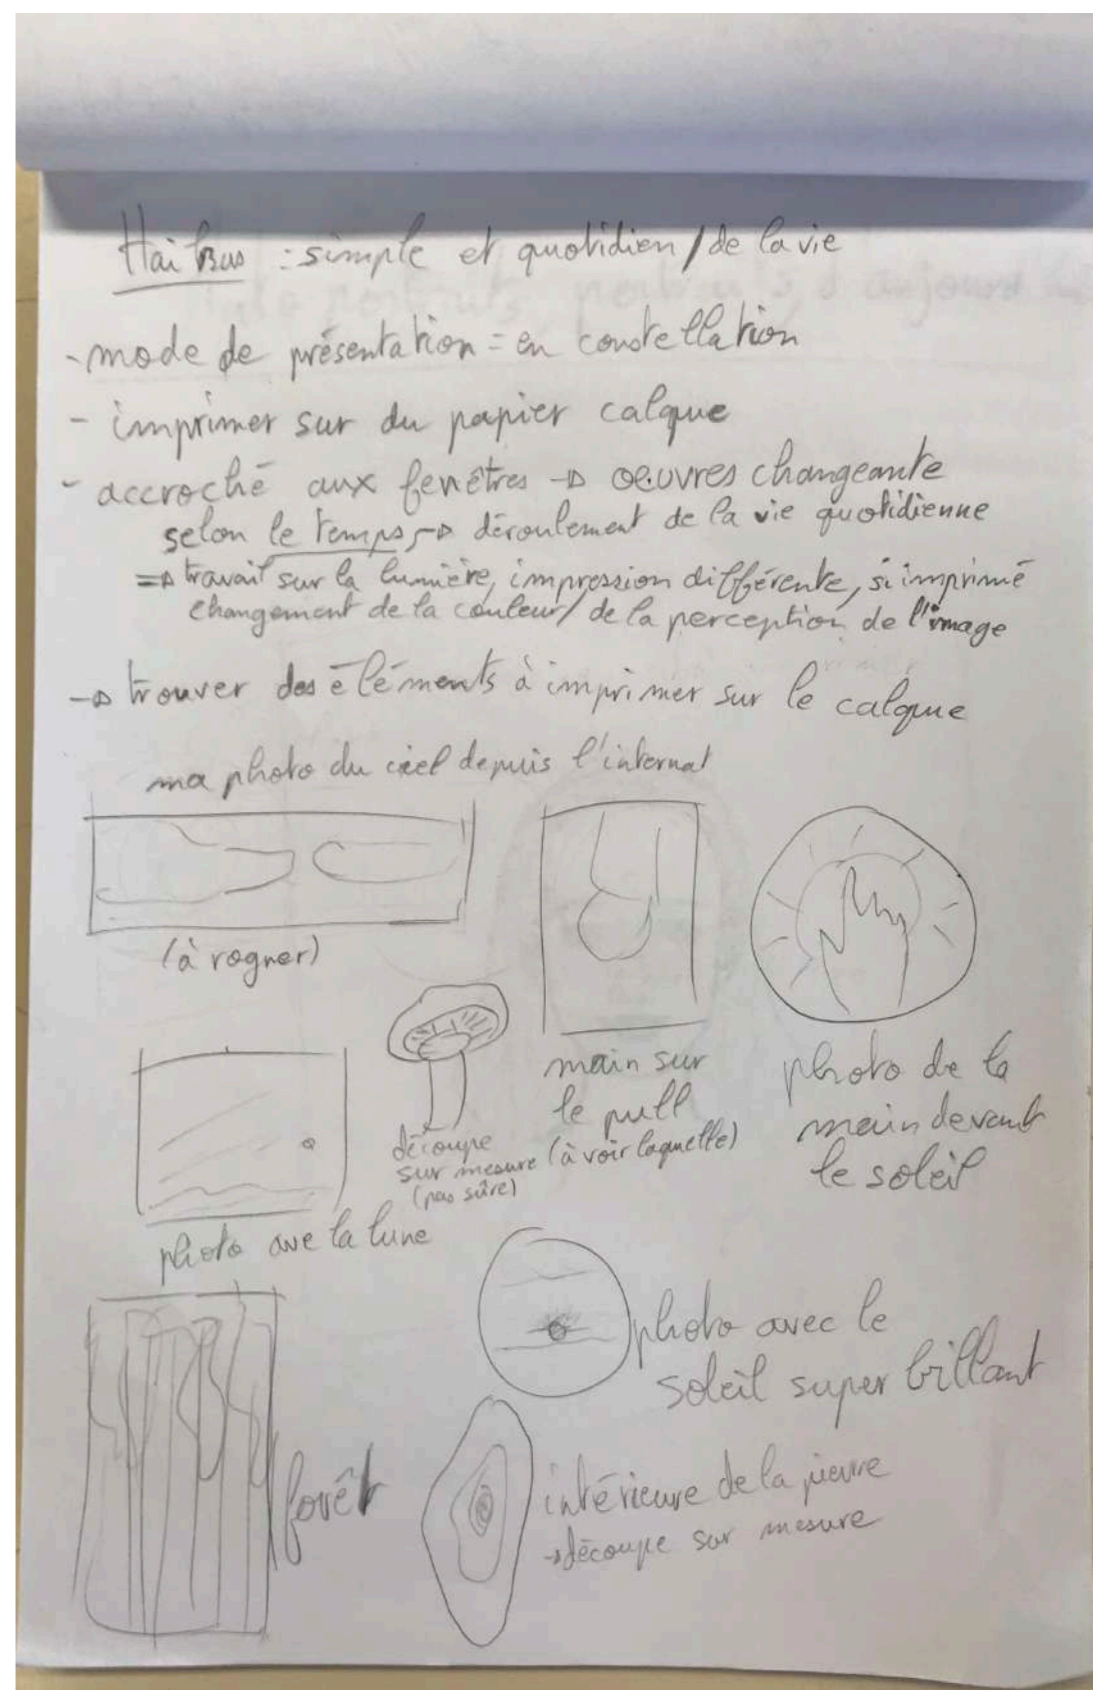 Haïkus : simple et quotidien / de la vie
- mode de présentation = en constellation
- imprimer sur du papier calque
- accroché aux fenêtres → oeuvres changeante
selon le temps, → déroulement de la vie quotidienne
⇒ travail sur la lumière, impression différente, si imprimé
changement de la couleur / de la perception de l'image
→ trouver des éléments à imprimer sur le calque
ma photo du ciel depuis l'internat
(à rogner)
main sur
le pull
(à voir laquelle)
photo de la
main devant
le soleil
découpe
sur mesure
(pas sûre)
photo ave la lune
photo avec le
soleil super brillant
forêt
intérieure de la pierre
→ découpe sur mesure